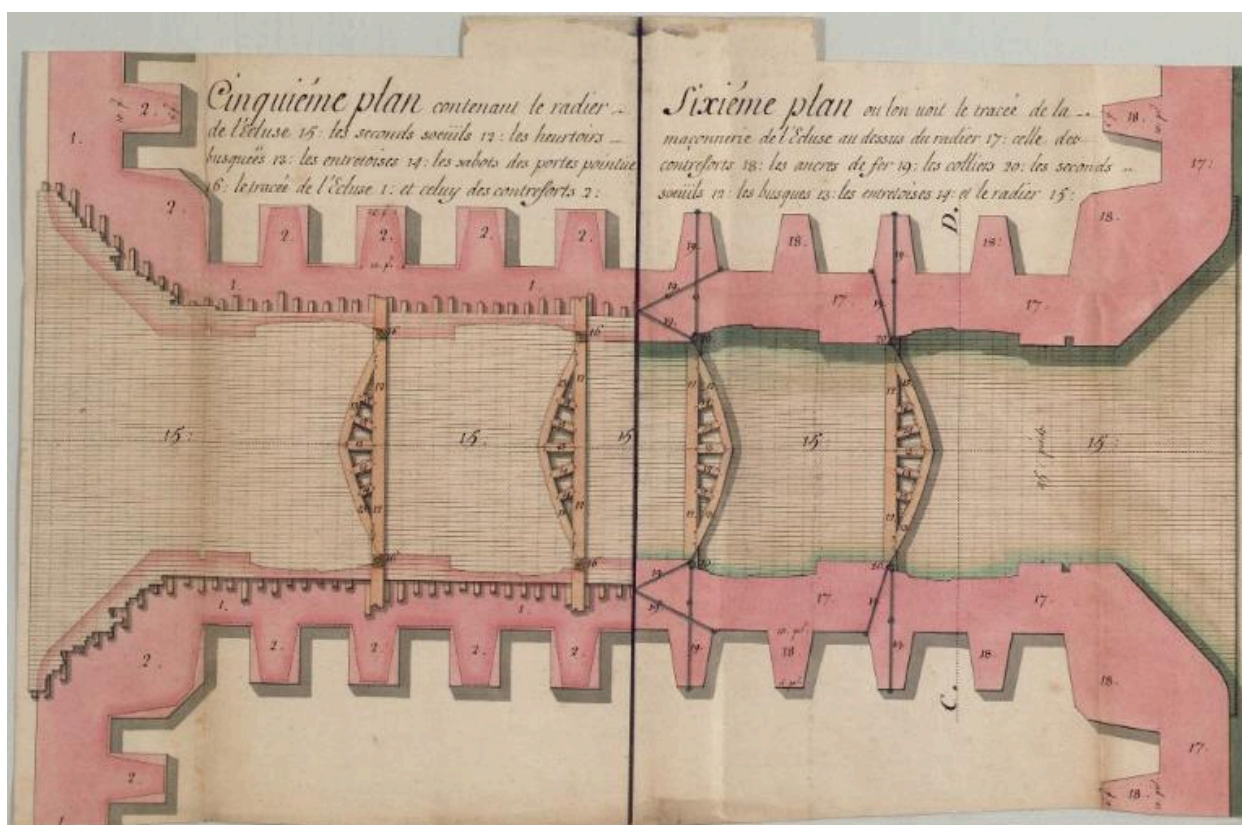 Cinquiéme plan contenant le radier
de l'écluse 15: les seconds soeüils 12: les heurtoirs
busquées 13: les entretoises 14: les sabots des portes pointüe
16: le tracée de l'Ecluse 1: et celuy des contreforts 2:
Sixiéme plan ou lon uoit le tracée de la
maçonnerie de l'Ecluse au dessus du radier 17: celle des
contreforts 18: les ancres de fer 19: les colliers 20: les seconds
soeüils 12: les busques 13: les entretoises 14: et le radier 15:
1.
2.
18.
17:
2
2. 2. 2. 2.
19.
18.
19.
D.
18:
18.
1. 1
19.
17.
19.
17:
19.
16
16
20
20
15:
15.
15
15:
45 pieds
15:
16
16
20
20
1. 1.
19.
19.
17.
19.
17:
2.
2. 2. 2. 2.
19.
18
19.
18.
C.
18.
17:
2.
18.
1